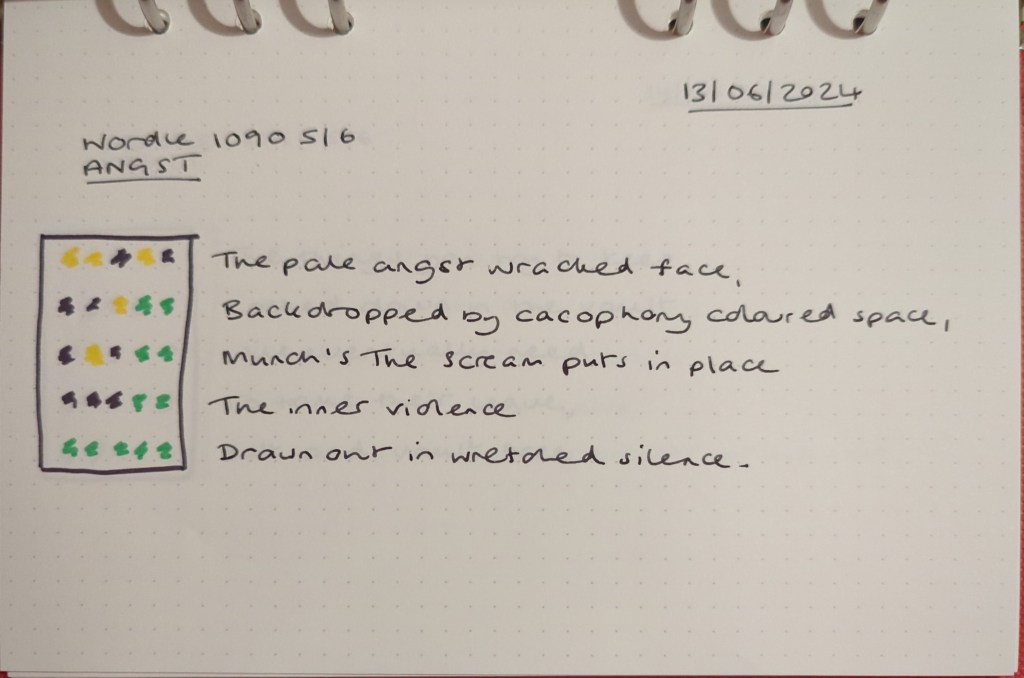 13/06/2024
Wordle 1090 5/6
ANGST
The pale angst wracked face,
Backdropped by cacophony coloured space,
Munch's The Scream puts in place
The inner violence
Drawn out in wretched silence.